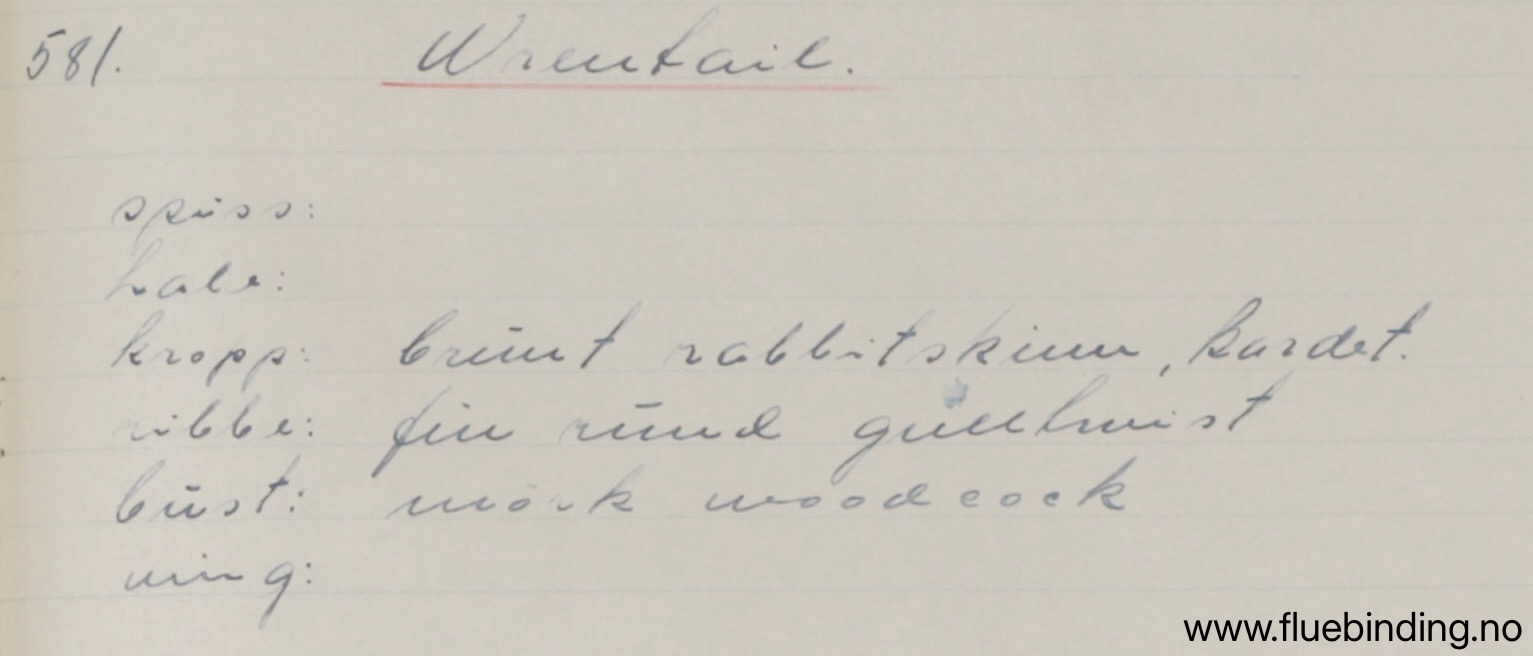 581. Wrentail.
spiss:
hale:
kropp: brunt rabbitskinn, kardet.
ribbe: fin rund gulltwist
bust: mörk woodcock
ving:
www.fluebinding.no